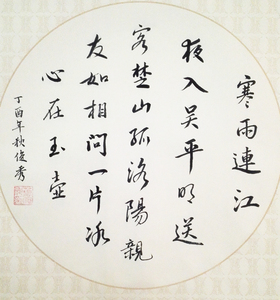 寒雨連江
夜入吴平明送
客楚山孤洛陽親
友如相問一片冰
心在玉壶
丁酉年狄俊秀